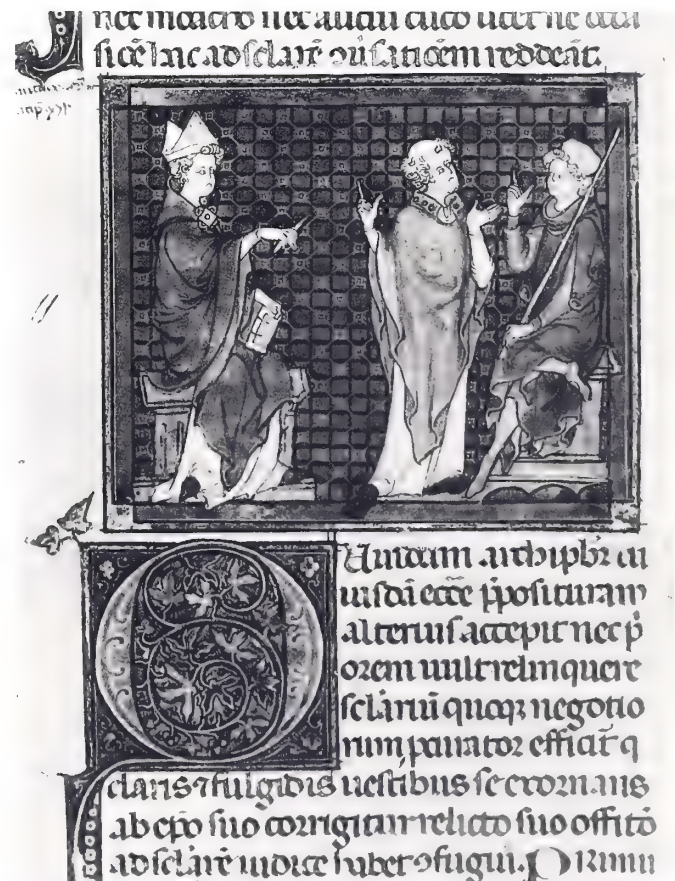 nec monacho nec alicui clico licet ne
siće hac ad sclarē ↄ
Quidam archipbr̄ cu
iusdā ecc̄e p̄posituram
alterius accepit nec p̄
orem uult relinquere
sclariū quoqꝫ negotio
rum ꝓcurator efficit̄ q
claris ⁊ fulgidis uestibus se exornans
ab ep̄o suo corrigitur relicto suo offitō
ad sclārē iudicē ↄfugiū. PRimū